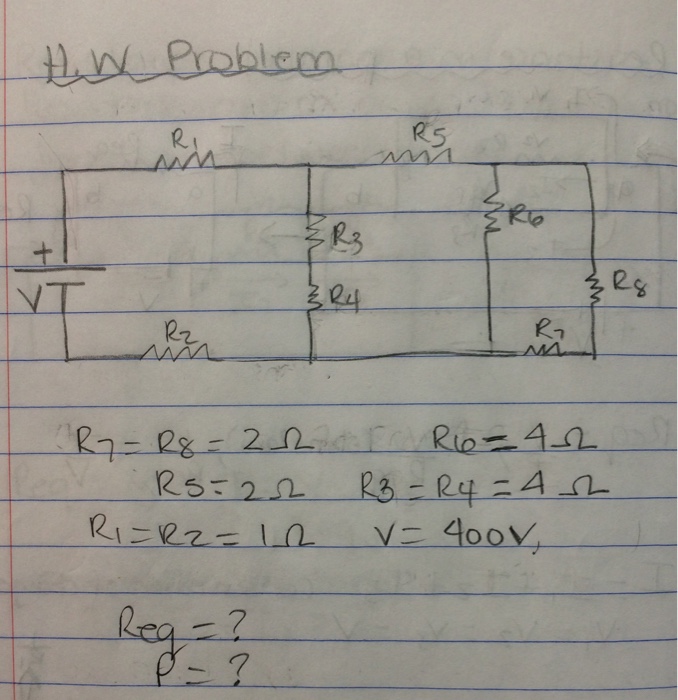 H.W Problem
R1
R5
+
R3
R6
V
R4
R8
R2
R7
R7 = R8 = 2 Ω R6 = 4 Ω
R5 = 2 Ω R3 = R4 = 4 Ω
R1 = R2 = 1 Ω V = 400V,
Req = ?
P = ?